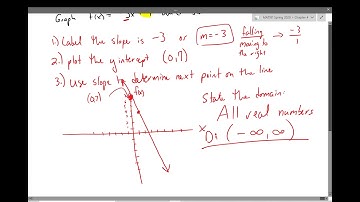 Graph
1.) Label the slope is -3 or m=-3 falling moving to the right → -3/1
2.) plot the y intercept (0,7)
3.) Use slope to determine next point on the line
(0,7) f(x)
State the domain:
All real numbers
x D: (-∞,∞)